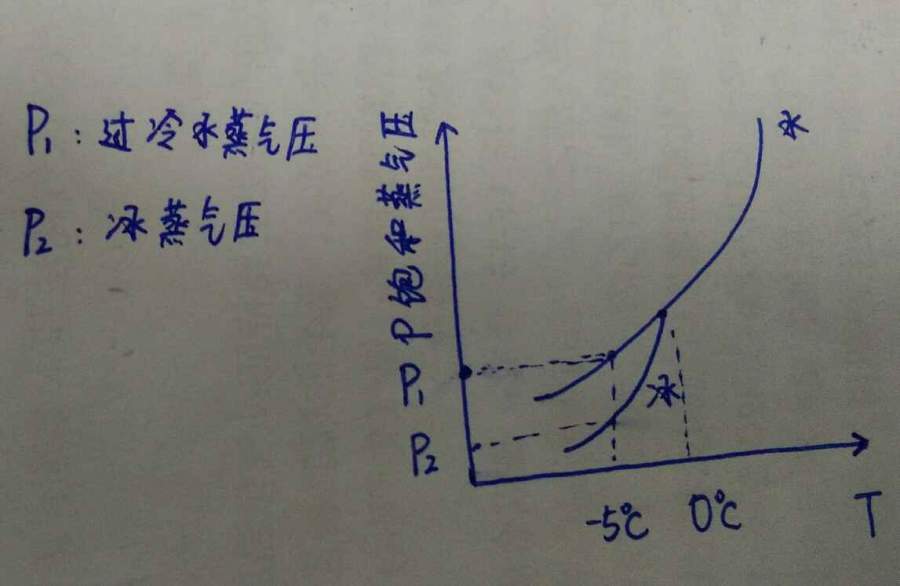 P₁：过冷水蒸气压
P₂：冰蒸气压
P饱和蒸气压
水
P₁
冰
P₂
-5℃
0℃
T